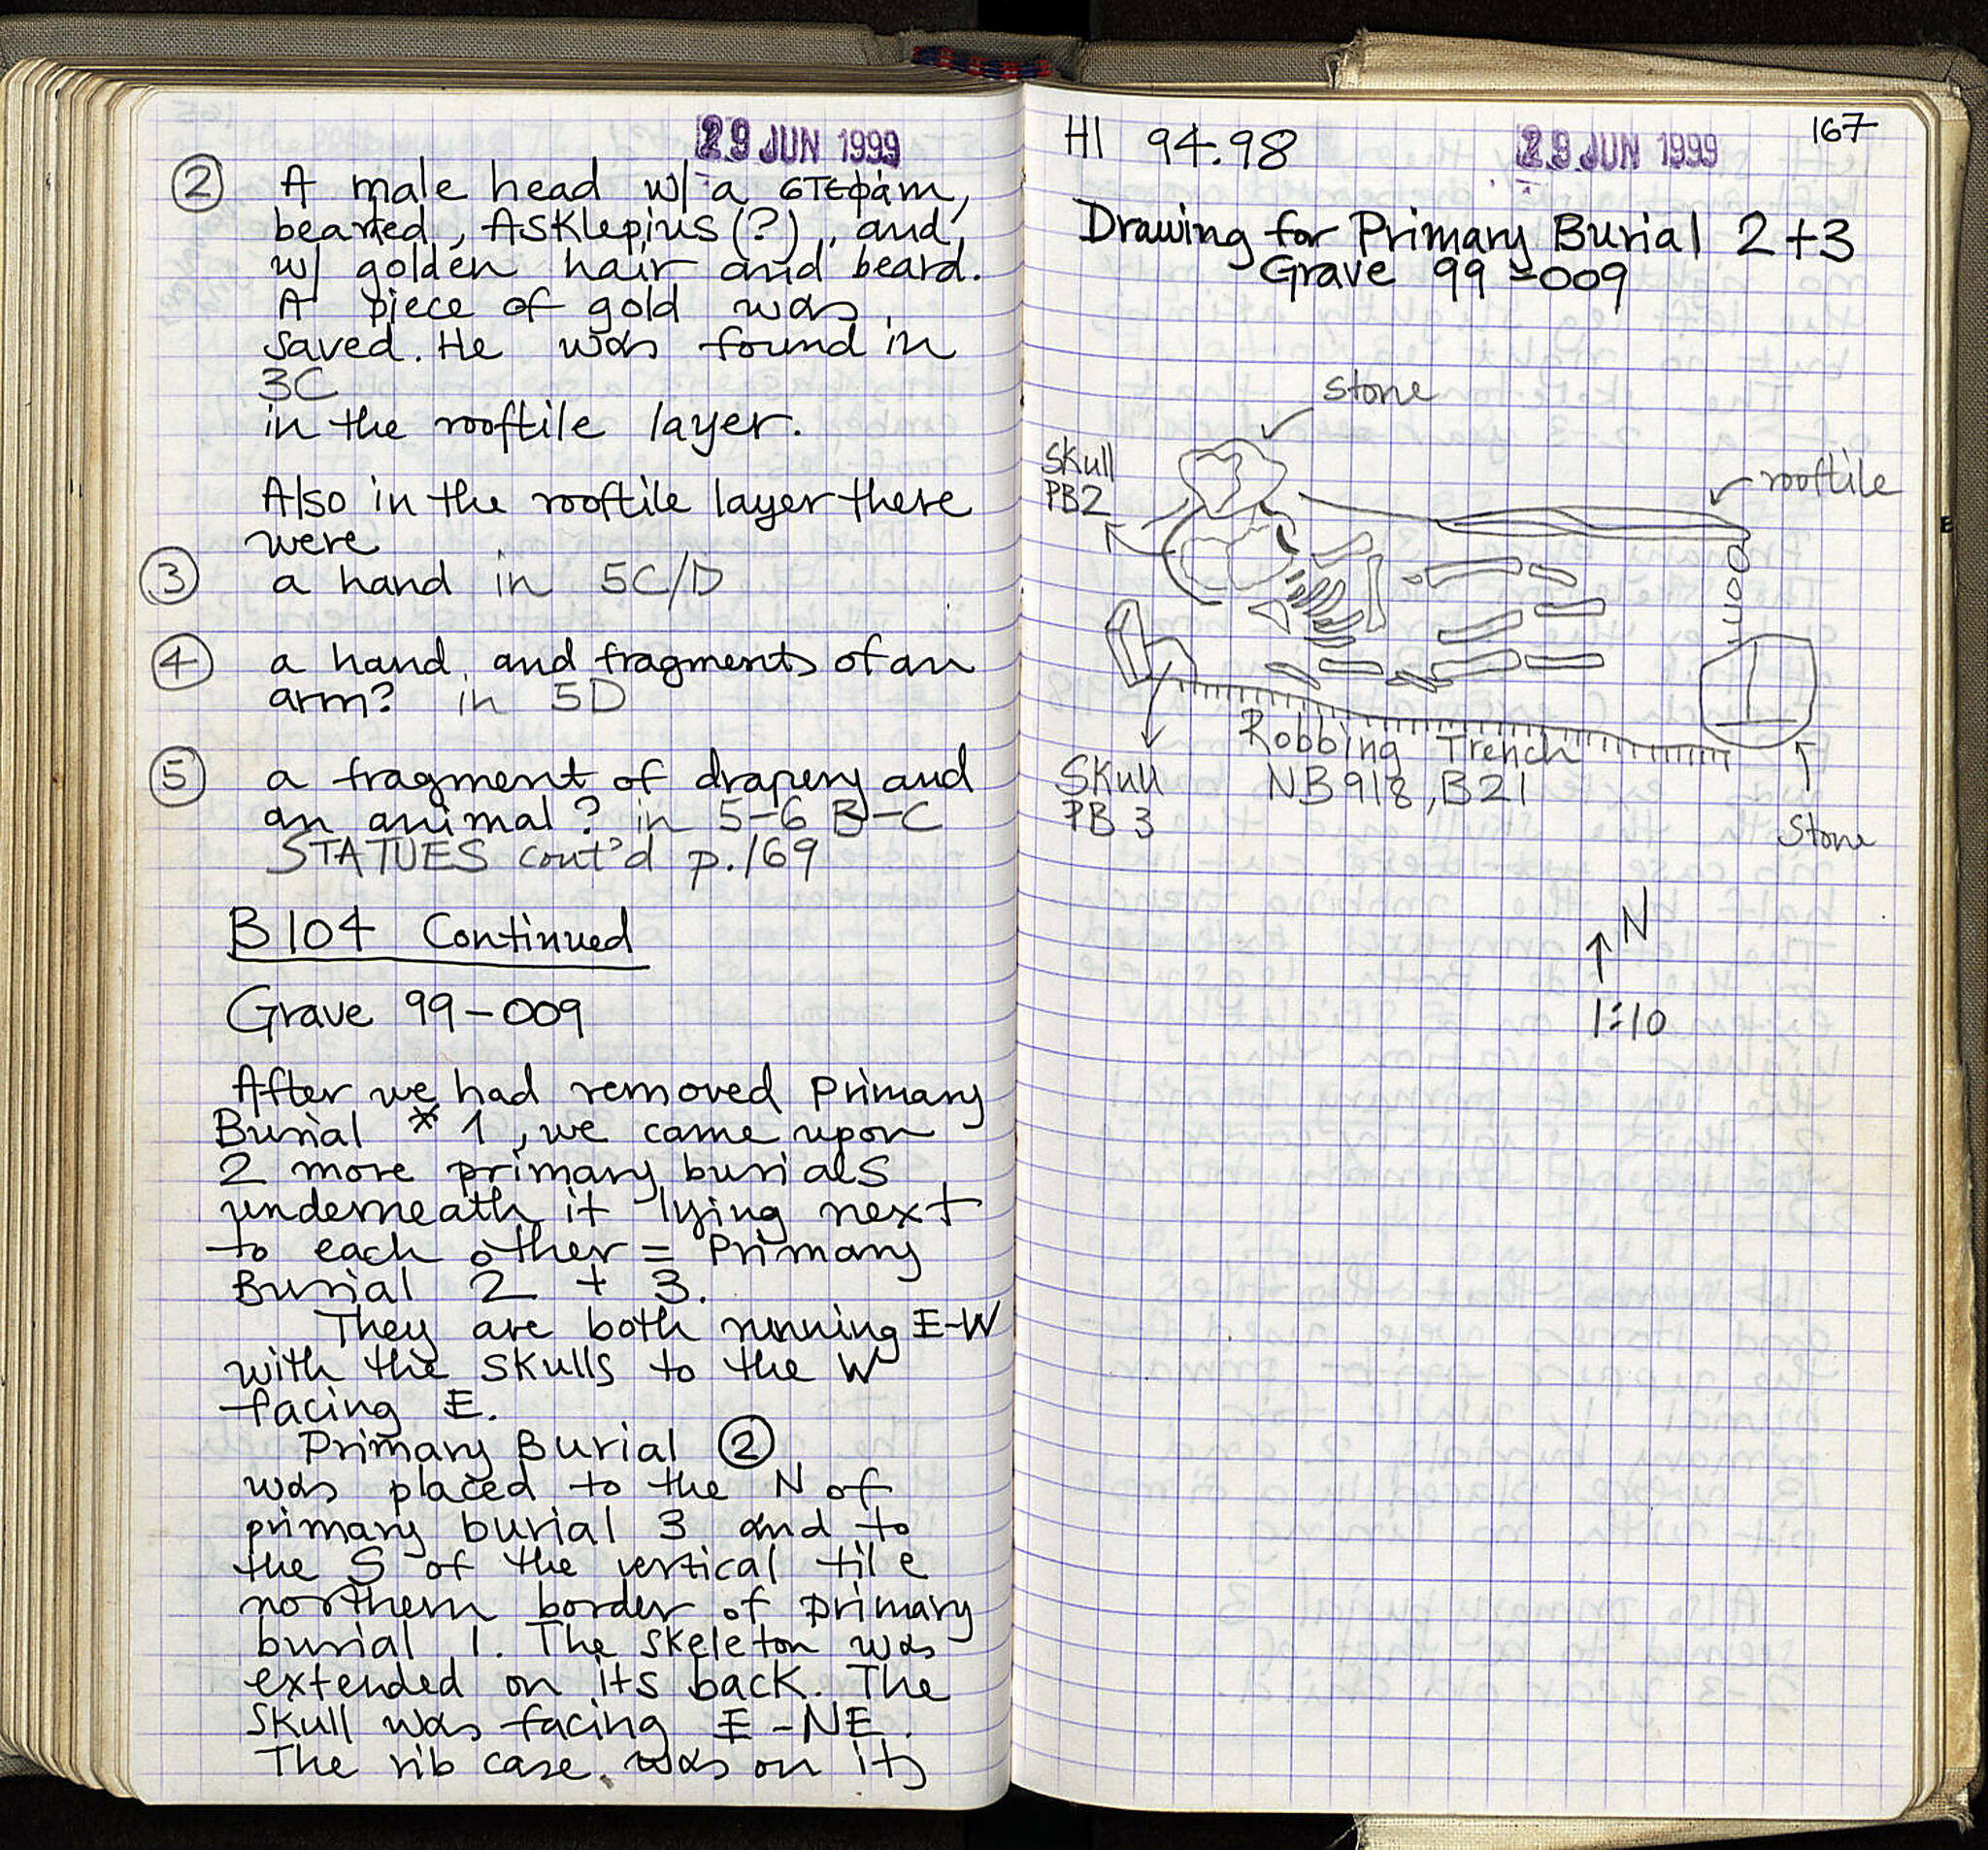 29 JUN 1999
② A male head w/ a στεφάνι,
bearded, Asklepius (?), and
w/ golden hair and beard.
A piece of gold was
saved. He was found in
3C
in the rooftile layer.
Also in the rooftile layer there
were
③ a hand in 5C/D
④ a hand and fragments of an
arm? in 5D
⑤ a fragment of drapery and
an animal? in 5-6 B-C
STATUES cont'd p. 169
B 104 Continued
Grave 99-009
After we had removed Primary
Burial * 1, we came upon
2 more primary burials
underneath it lying next
to each other = Primary
Burial 2 + 3.
They are both running E-W
with the skulls to the W
facing E.
Primary Burial ②
was placed to the N of
primary burial 3 and to
the S of the vertical tile
northern border of primary
burial 1. The skeleton was
extended on its back. The
skull was facing E-NE.
The rib case was on its
167
HI 94.98
29 JUN 1999
Drawing for Primary Burial 2+3
Grave 99-009
stone
Skull
PB2
rooftile
Robbing Trench
NB 918, B21
Skull
PB 3
Stone
N
1:10